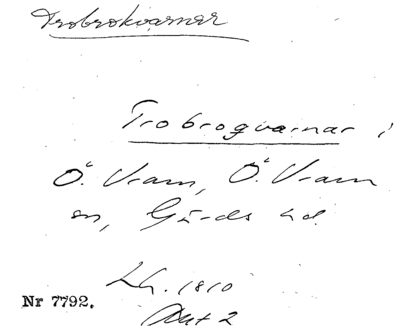 Trobrokvarnar
Trobrogvarnar i
Ö. Vram, Ö. Vram
sn, Gärds hd.
Lh. 1810
Akt 2
Nr 7792.